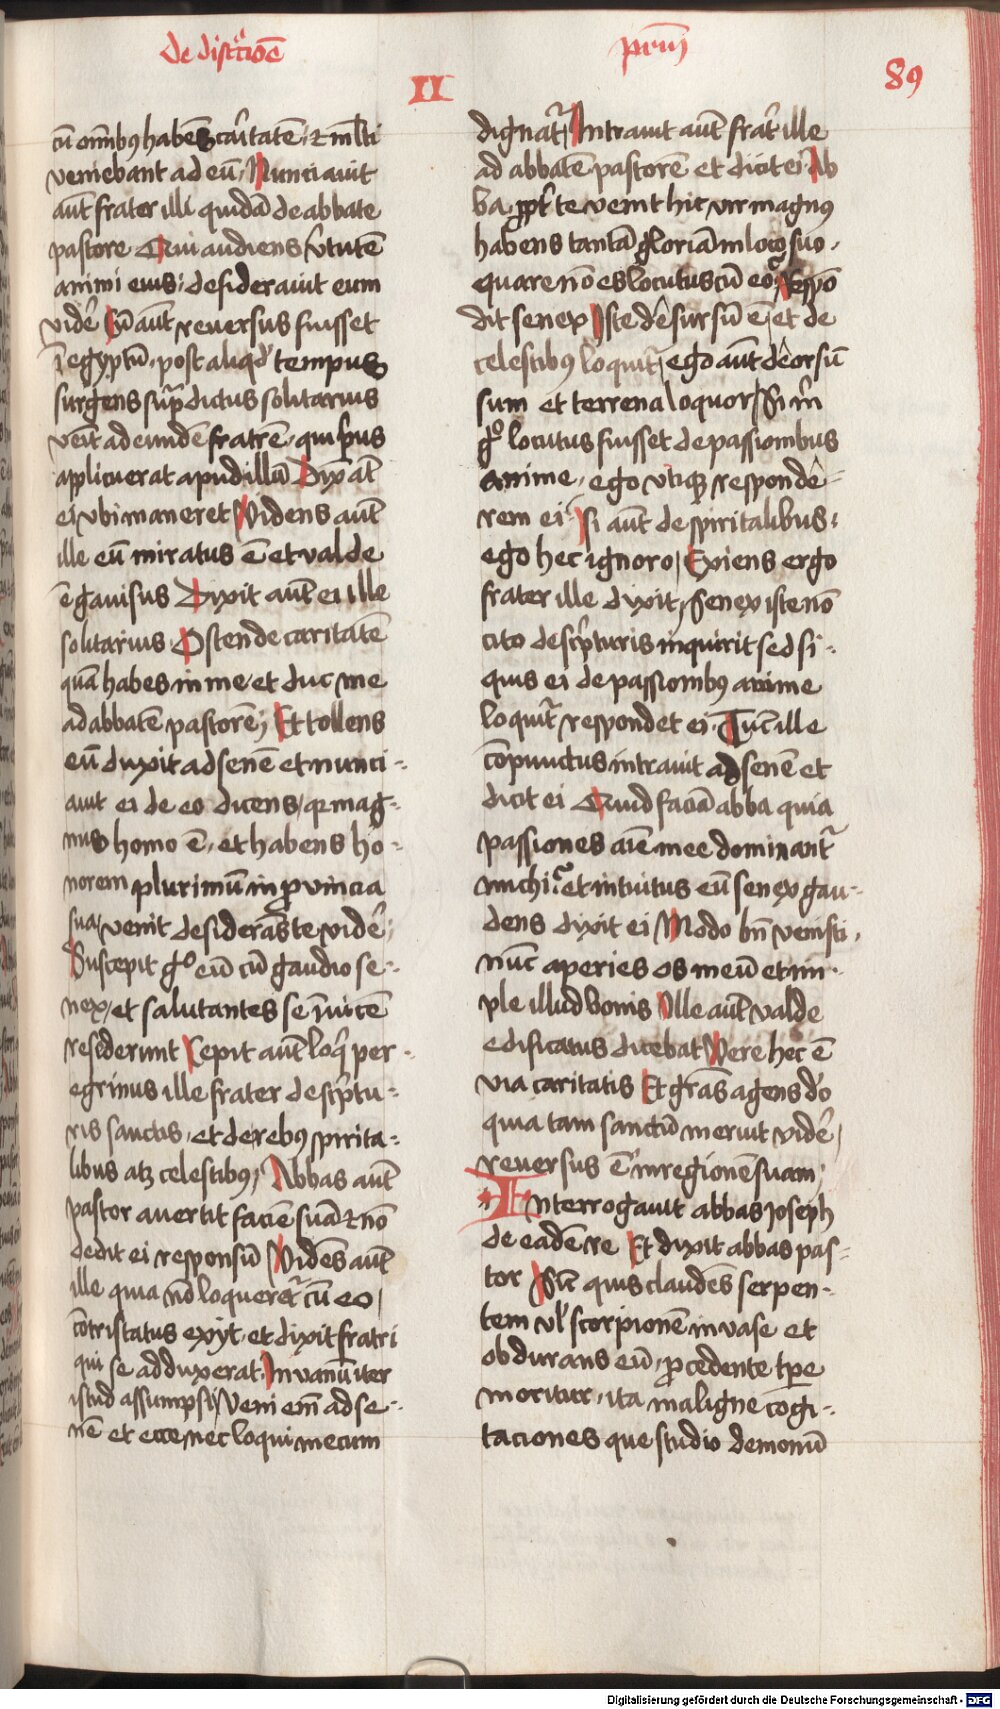 de discrͣcioē
prm̄j
II
89
cū om̄ibꝯ habēs cāritatē · ⁊ ml̄ti
veniebant ad eū · Nunciauit
aūt frater illi quidā de abbate
pastore Qui audiens v̾tutē
animi eius : desiderauit eum
vidē Cū aūt reuersus fuisset
ī egyptū · post aliqd̾ tempus
surgens sup̾dictus solitarius
venit ad eundē fratrē · qui p̾us
applicuerat apud illū Dixāt
ei vbi maneret Videns aūt
ille eū miratus ē et valde
ē gauisus Dixit aūt ei ille
solitarius · Ostende caritatē
quā habes in me · et duc me
ad abbatē pastorē ; Et tollens
eū duxit ad senē et nunci-
auit ei de eo dicens / qꝛ mag-
nus homo ē · et habens ho-
norem plurimū in ꝓuincia
sua / venit desiderās te vidē ;
Suscepit gͦ eū cū gaudio se-
nex / et salutantes se īuicē
resederunt Cepit aūt loq̾ per-
egrinus ille frater de scp̾tu-
ris sanctis · et de rebꝯ spirita-
libus atꝫ celestibꝯ / Abbas aūt
pastor auertit faciē suā ⁊ nō
dedit ei responsū Vidēs aūt
ille quia nō loqueret̾ cū eo /
cōtristatus exijt · et dixit fratri
qui se adduxerat · In vanū iter
istud assumpsi / Veni em̄ ad se-
nē et ecce nec loqui mecum
dignat̾ / Intrauit aūt frat̾ ille
ad abbatē pastorē et dicit ei Ab
ba ꝓpt̾ te venit hic vir magnꝯ
habens tantā gloriā in loco suo .
quare nō es locutus cū eo Respō
dit senex Iste dē sursū ē / et de
celestibꝯ loquit̾ / ego aūt dē orsū
sum et terrena loquor / Si m̄
gͦ locutus fuisset de passionibus
anime · ego vtiqꝫ respondē-
rem ei · si aūt de spiritalibus :
ego hec ignoro / Exiens ergo
frater ille dixit / Senex iste nō
cito de scp̾turis inquirit sed si-
quis ei de passionibꝯ anime
loquit̾ respondet ei · Tūc ille
cōpunctus intrauit ad senē et
dicit ei Quid faciā abba quia
passiones aīe mee dominant̾
michi et intuitus eū senex gau-
dens dixit ei Modo bn̄ venisti .
nūc aperies os meū et im-
ple illud bonis Ille aūt valde
edificatus dicebat Vere hec ē
via caritatis Et grās agens dō
quia tam sanctū meruit vidē /
reuersus ē in regionē suam ·
Interrogauit abbas Joseph
de eadē re Et dixit abbas pas-
tor Sic̄ quis claudēs serpen-
tem vl̾ scorpionē in vase et
obdurans eū · ꝓcedente tp̄e
moritur · ita maligne cogi-
taciones que studio demonū
Digitalisierung gefördert durch die Deutsche Forschungsgemeinschaft - DFG